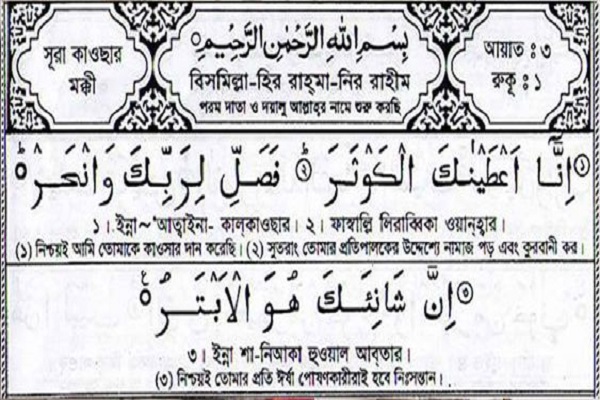 সূরা কাওছার
মক্কী
بِسْمِ اللهِ الرَّحْمٰنِ الرَّحِيْمِ
বিসমিল্লা-হির রাহ্‌মা-নির রাহীম
পরম দাতা ও দয়ালু আল্লাহ্‌র নামে শুরু করছি
আয়াত : ৩
রুকু : ১
اِنَّاۤ اَعْطَيْنٰكَ الْكَوْثَرَ ۞ فَصَلِّ لِرَبِّكَ وَانْحَرْ
১। ইন্না~ 'আত্বাইনা- কাল্‌কাওছার। ২। ফাছাল্লি লিরাব্বিকা ওয়ান্‌হার।
(১) নিশ্চয়ই আমি তোমাকে কাওসার দান করেছি। (২) সুতরাং তোমার প্রতিপালকের উদ্দেশ্যে নামাজ পড় এবং কুরবানী কর।
اِنَّ شَانِئَكَ هُوَ الْاَبْتَرُ
৩। ইন্না শা-নিআকা হুওয়াল আব্‌তার।
(৩) নিশ্চয়ই তোমার প্রতি ঈর্ষা পোষণকারীরাই হবে নিঃসন্তান।